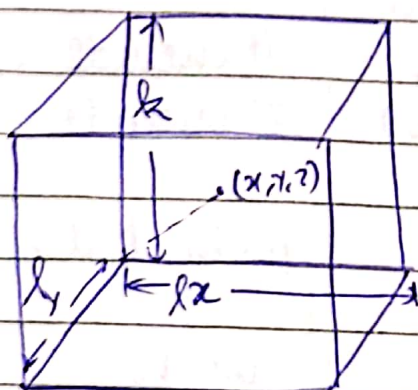 lz
(x,y,z)
ly
lx